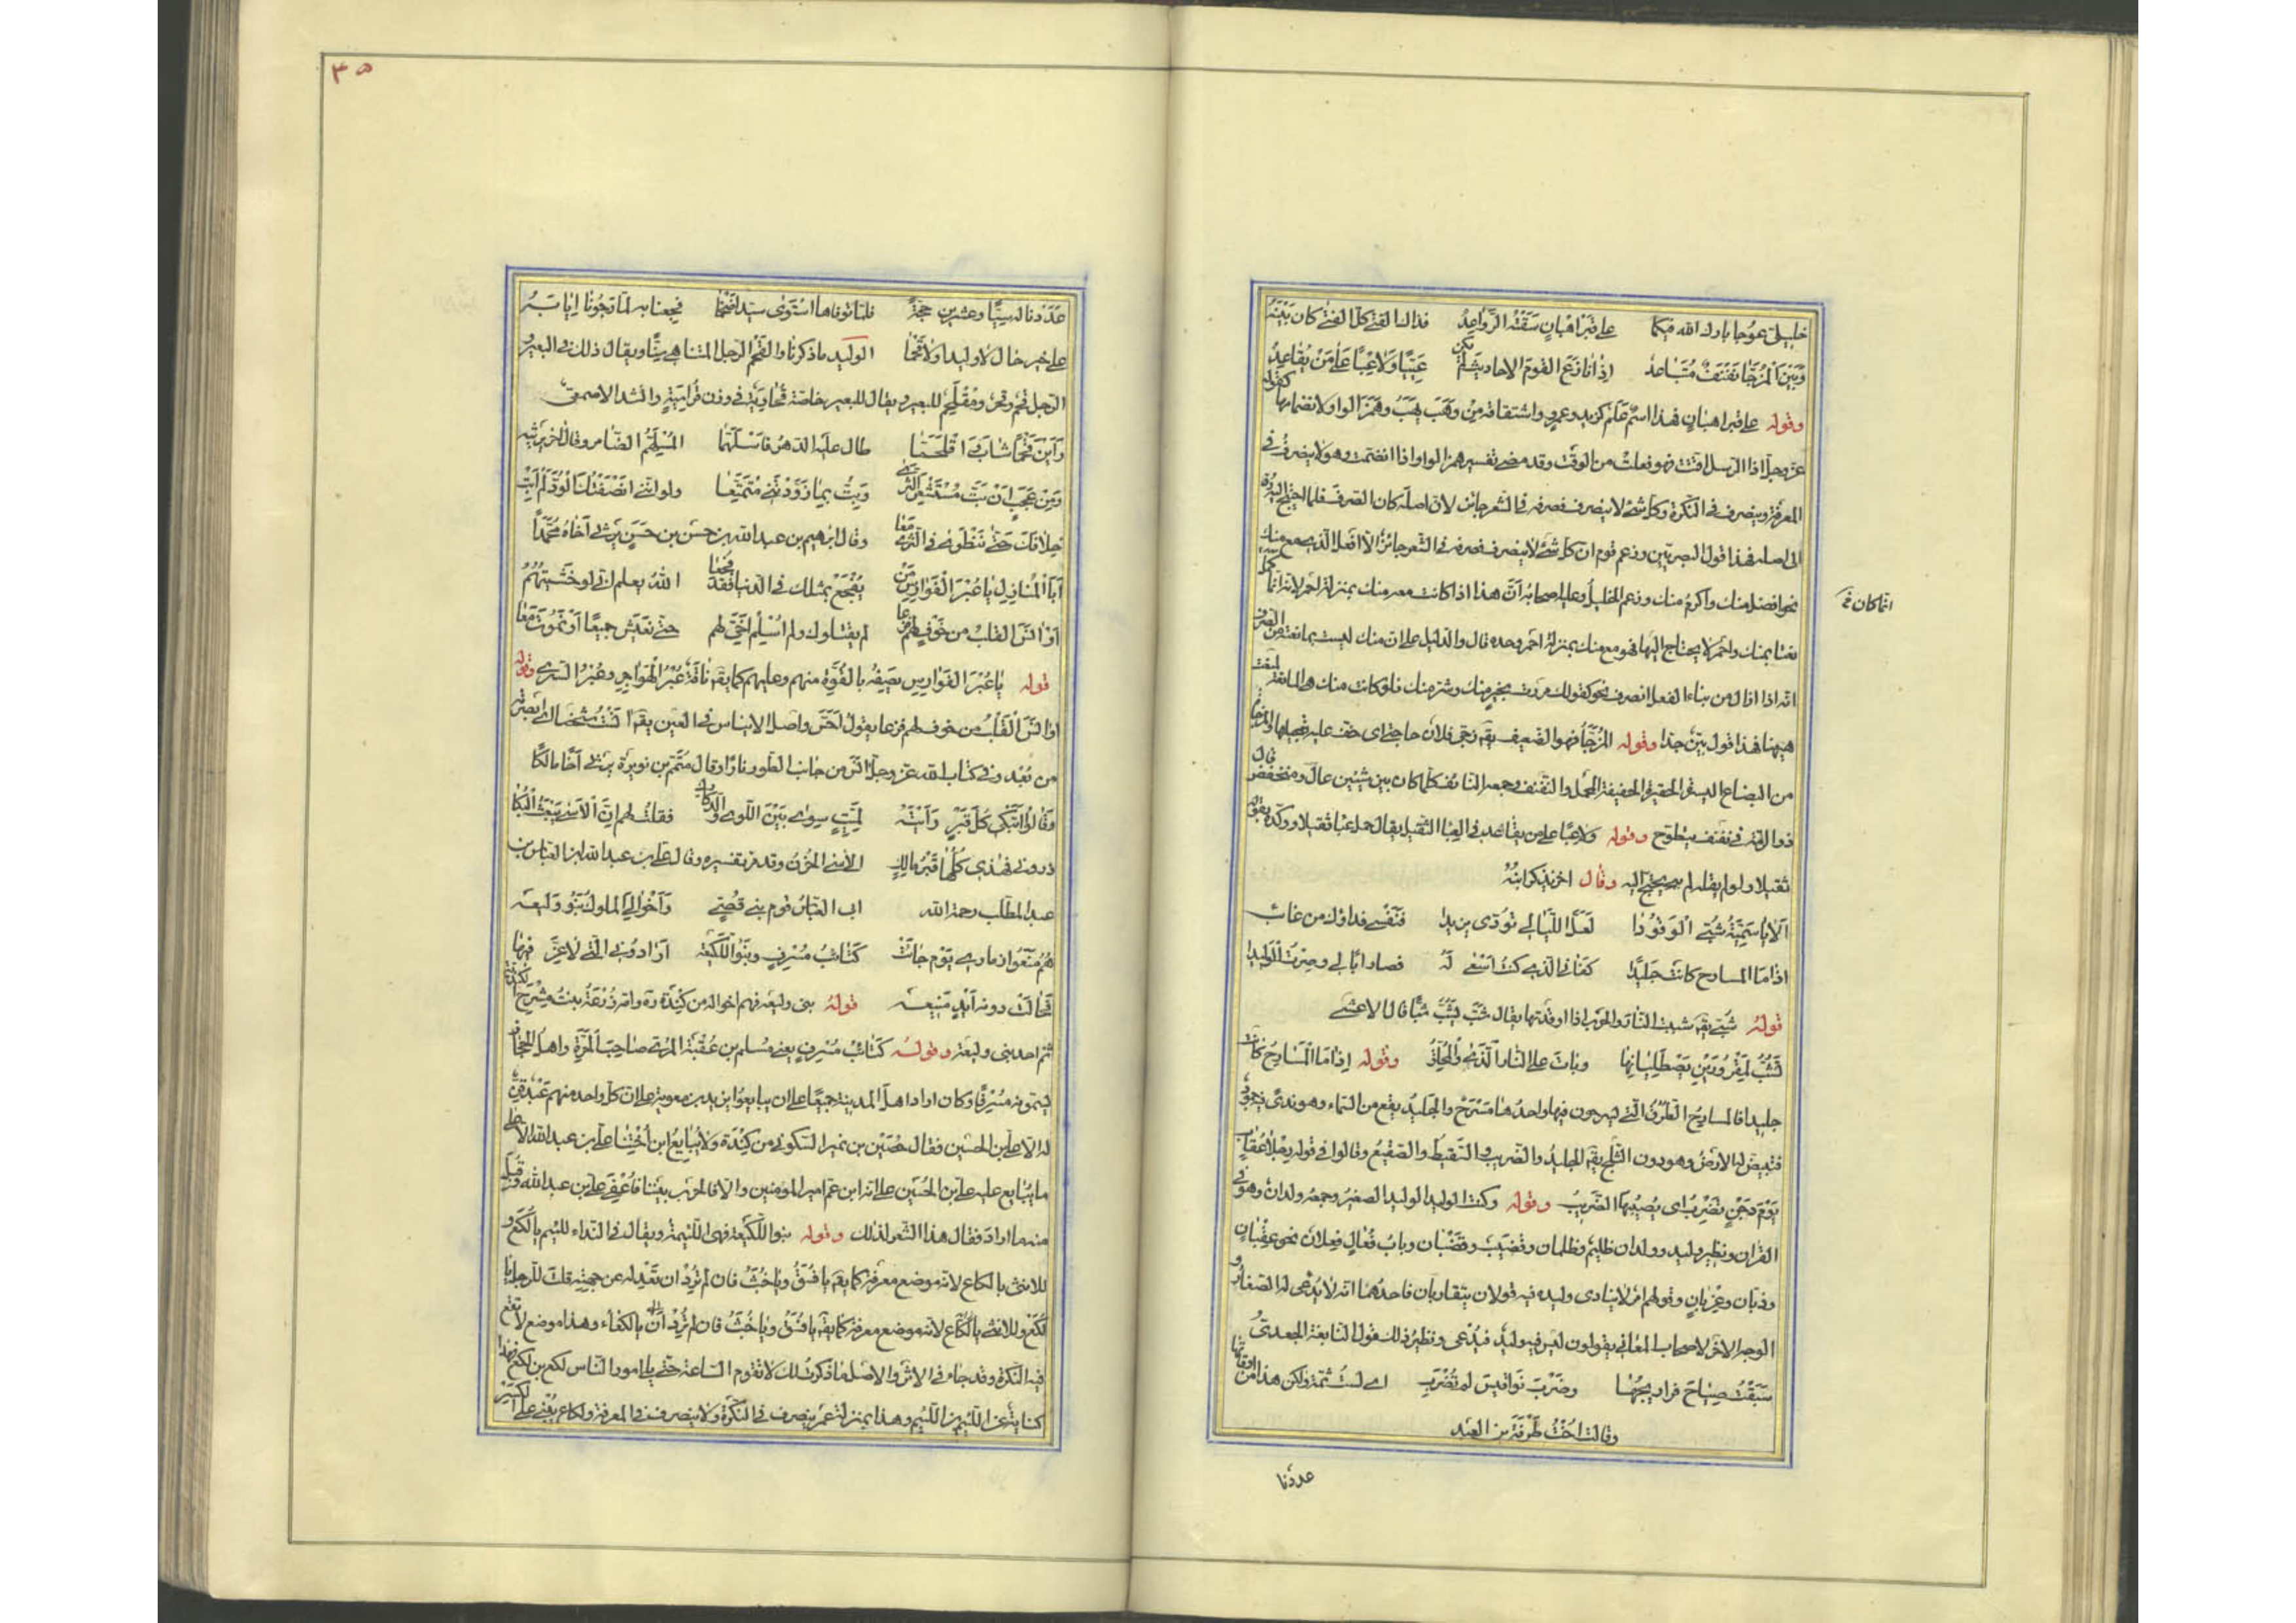 خليلىّ عوُجا بارك الله فيكما على قبر اهبانٍ سقته الرّواعدُ فذاك الفتى كلّ الفتى كان بينهُ
وَبين المُزجّا نفنفٌ متباعدُ اِذا نازعَ القومَ الاحاديثَ لم يكن عَيِيّا وَلا عِبًا عَلى مَن يقاعِدُ
وقوله على قبر اهبان فهذا اسمٌ عَلم كزيد وعمرو واشتقاقه من وهَبَ يهَبُ وهمزالواو لانضمامها كقوله
عز وجل اذا الرسل اقتت فهو فعلت من الوقت وقد مضى تفسير همز الواو اذا انضمت وهو لا ينصرف فى
المعرفة وينصرف فى النكرة وكل شئ لا ينصرف فصرفه فى الشعر جائز لان اصله كان الصرف فلما احتيج اليه ردّ
الى اصله فهذا قول البصريين وزعم قوم ان كل شئ لا ينصرف فصرفه فى الشعر جائز الا افعل الذى معه منك
نحو افضل منك واكرم منك وزعم الخليل وعليه اصحابه انّ هذا اذا كانت معه منك بمنزلة احمر لانه انما كمل
انما كان فى
نعتا بمنك واحمر لا يحتاج اليها فهو مع منك بمنزلة احمر وحده قال والدليل على ان منك ليست بمانعته من الصرف
انه اذا زال من بناء افعل انصرف نحو قولك مررت بخير منك وشر منك فلو كانت منك هى المانعة لمنعت
هيهنا فهذا قول بيّن جدا وقوله المُزجّا فهو الضعيف يقه زجى فلان حاجتى اى خف عليه تعجيلها والمزجاة
من البضائع اليسيرة الحقيرة الخفيفة المحمل والنفنف وجمعه النفانف كلما كان بين شيئين عال ومنخفض قال
ذو الرمة فى نفنف يتطوح وقوله ولا عبًا على من يقاعد فالعبأ الثقيل يقال حمل عبأ ثقيلا ووكده بقوله
ثقيلا ولو لم يقله لم يحتج اليه وقال اخر يذكر ابنهُ
اَلا يا سُمَيّة شبّى الوقودا لَعلّ اللّيالى تؤدّى يزيدا فنفسى فداؤك من غائب
اذا ما المسارح كانت جليدا كفانى الذى كنت اسعى لهُ فصار ابًا لى وصرت الوليدا
قولهُ شبّى يقه شببت النار والحرب اذا اوقدتها يقال شبّ يشبّ شبًا قال الاعشى
تُشبّ لِمقرورَين يصطليانها وبات على النار النّدى والمُحلّق وقوله اِذا ما المسارحُ كانت
جليدا فالمسارحُ الطّرُقُ الّتى يسرحون فيها واحدُها مسرَحٌ والجليدُ يقع من السماء وهو ندًى فيه جمود
فتبيض له الارض وهو دون الثلج يقه الجليد والضريب والسقيط والصقيع وقالوا فى قوله رجلا عقاب
يَوم دَجن تضرب اى يصيبها الضريب وقوله وكنت الوليد الوليد الصغير وجمعه ولدان وهو فى
القران ونظير وليد وولدان ظليم وظلمان وقضيب وقضبان وباب فعال فعلان نحو عقبان
وذبان وغربان وقولهم امر لا ينادى وليده فيه قولان يتقاربان فاحدهما انه لا يدعى له الصغار و
الوجه الاخر لاصحاب المعانى يقولون ليس فيه وليد فيدعى ونظير ذلك قول النابغة الجعدى
سَبقتُ صِياح فراريجها وصَوتَ نواقيس لم تُضرَبِ اى ليست ثمة ولكن هذا من اوقاتها
وقالت اخت طرفة بن العبد
عددنا
٣٥
عَدَدنا له سِتًّا وعشرين حجّةً فلمّا توفاها استوى سيّدا فخما فجعنا به لمّا رجونا اِيابهُ
على خير حال لا وليدا وَلا قحما الوليد ما ذكرنا والقحم الرجل المتناهى سنًّا ويقال ذلك فى البعير و
الرجل قحم وقحر ومقلحم للبعير ويقال للبعير خاصة قحارية فى وزن قراسية وانشد الاصمعى
رَأين قحمًا شاب واقلحمّا طال عليه الدهر فاسلهمّا المُسلهمّ الضامر وقال اخر يرثيه
وَمِن عجب ان بتّ مستشعر الثرى وَبِتُّ بما زوّدتنى متمتّعا ولو اننى انصفتك الودّ لم ابت
خِلافك حتّى ننطوى فى الثرى معا وقال ابرهيم بن عبد الله بن حسن بن حسن يرثى اخاه محمّدًا
اَبا المنازل يا عُبر الفوارس من يُفجع بمثلك فى الدنيا فقد فُجعا اللهُ يعلم انّى لو خشيتهُمُ
اَو انس القلب من خوف لهم فزعا لم يقتلوك ولم اُسلم اخى لهم حتّى نعيش جميعًا او نموت معا
قوله يا عُبر الفوارس يصفه بالقوّة منهم وعليهم كما يقه ناقة عُبر الهواجر وعُبر السُّرى وقوله
او انس القلب من خوف لهم فزعا يقول احسّ واصل الايناس فى العين يقه انست شخصا اى ابصرته
من بُعد وفى كتاب الله عز وجل انس من جانب الطور نارًا وقال متمّم بن نويرة يرثى اخاه مالكًا
وَقالوا اَتبكى كلّ قبر رَأيته لميت سوى بين اللّوى والدكادك فقلت لهم اِنّ الاسى يبعث البكا
ذرونى فهذى كلّها قبر مالِك الاسى الحزن وقد مر تفسيره وقال على بن عبد الله ابن العباس بن
عبد المطلب رحمة الله ابى العباس قوم بنى قصىّ وَاَخوالى الملوك بنو وَليعه
هُمُ منعوا ذمارى يوم جاءت كتائب مُسرف وبنو اللّكيعه اَرادونى الّتى لا عِزّ فيها
فحالت دونه اَيد منيعه قولهُ بنى وليعه فهم اخواله من كندة وامه زرعة بنت مشرح الكندية
ثم احد بنى وليعة وقولهُ كتائب مُسرف يعنى مسلم بن عقبة المرّى صاحب الحرّة واهل الحجاز
يسمونه مُسرفًا وكان اراد اهل المدينة جميعًا على ان يبايعوا يزيد بن معوية على ان كل واحد منهم عَبد قنّ
له الا على بن الحسين فقال حُصين بن نمير السكونى من كندة ولا يُبايع ابن اختنا على بن عبد الله الا على
ما يُبايع عليه على بن الحسين على انه ابن عم امير المؤمنين والا فالحرب بيننا فاُعفى على بن عبد الله وقُبل
منه ما اراد فقال هذا الشعر لذلك وقوله بنو اللكيعة فهى اللئيمة ويقال فى النداء للئيم يا لكع و
للانثى يا لكاع لانه موضع معرفة كما يقه يا فُسق ويا خُبث فان لم تُرد ان تعدله عن جهته قلت للرجل يا
لكع وللانثى يا لكاع لانه موضع معرفة كما يقه يا فسق ويا خبث فان لم ترد ان يا لكعاء وهذا موضع لا تقع
فيه النكرة وقد جاء فى الاثر والاصل ما ذكرت لك لا تقوم الساعة حتى يلى امور الناس لكع بن لكع فهذا
كناية عن اللئيم بن اللئيم وهذا بمنزلة عمر ينصرف فى النكرة ولا ينصرف فى المعرفة ولكاع يبنى على الكسر